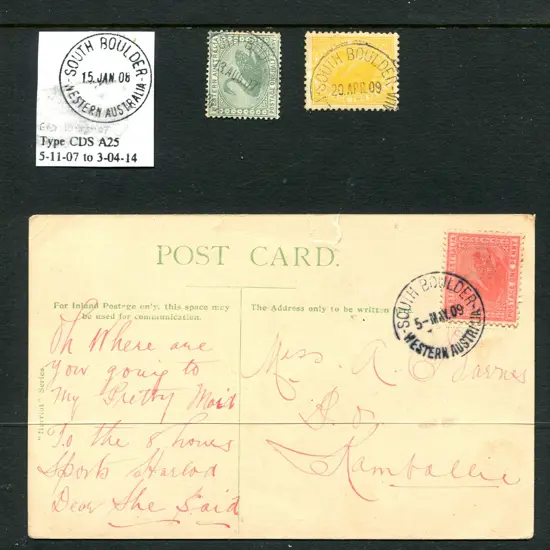 SOUTH BOULDER
15 JAN. 08
WESTERN AUSTRALIA
Type CDS A25
5-11-07 to 3-04-14
SOUTH BOULDER
20.APR.09
POST CARD.
For Inland Postage only, this space may
be used for communication.
The Address only to be written
SOUTH BOULDER
5-MAY.09
WESTERN AUSTRALIA
POSTAGE ONE PENNY
"Herriot" Series.
Oh Where are
You going to
My Pretty Maid
To the 8 hours
Sports
Dear She Said
Miss A
Kamballie